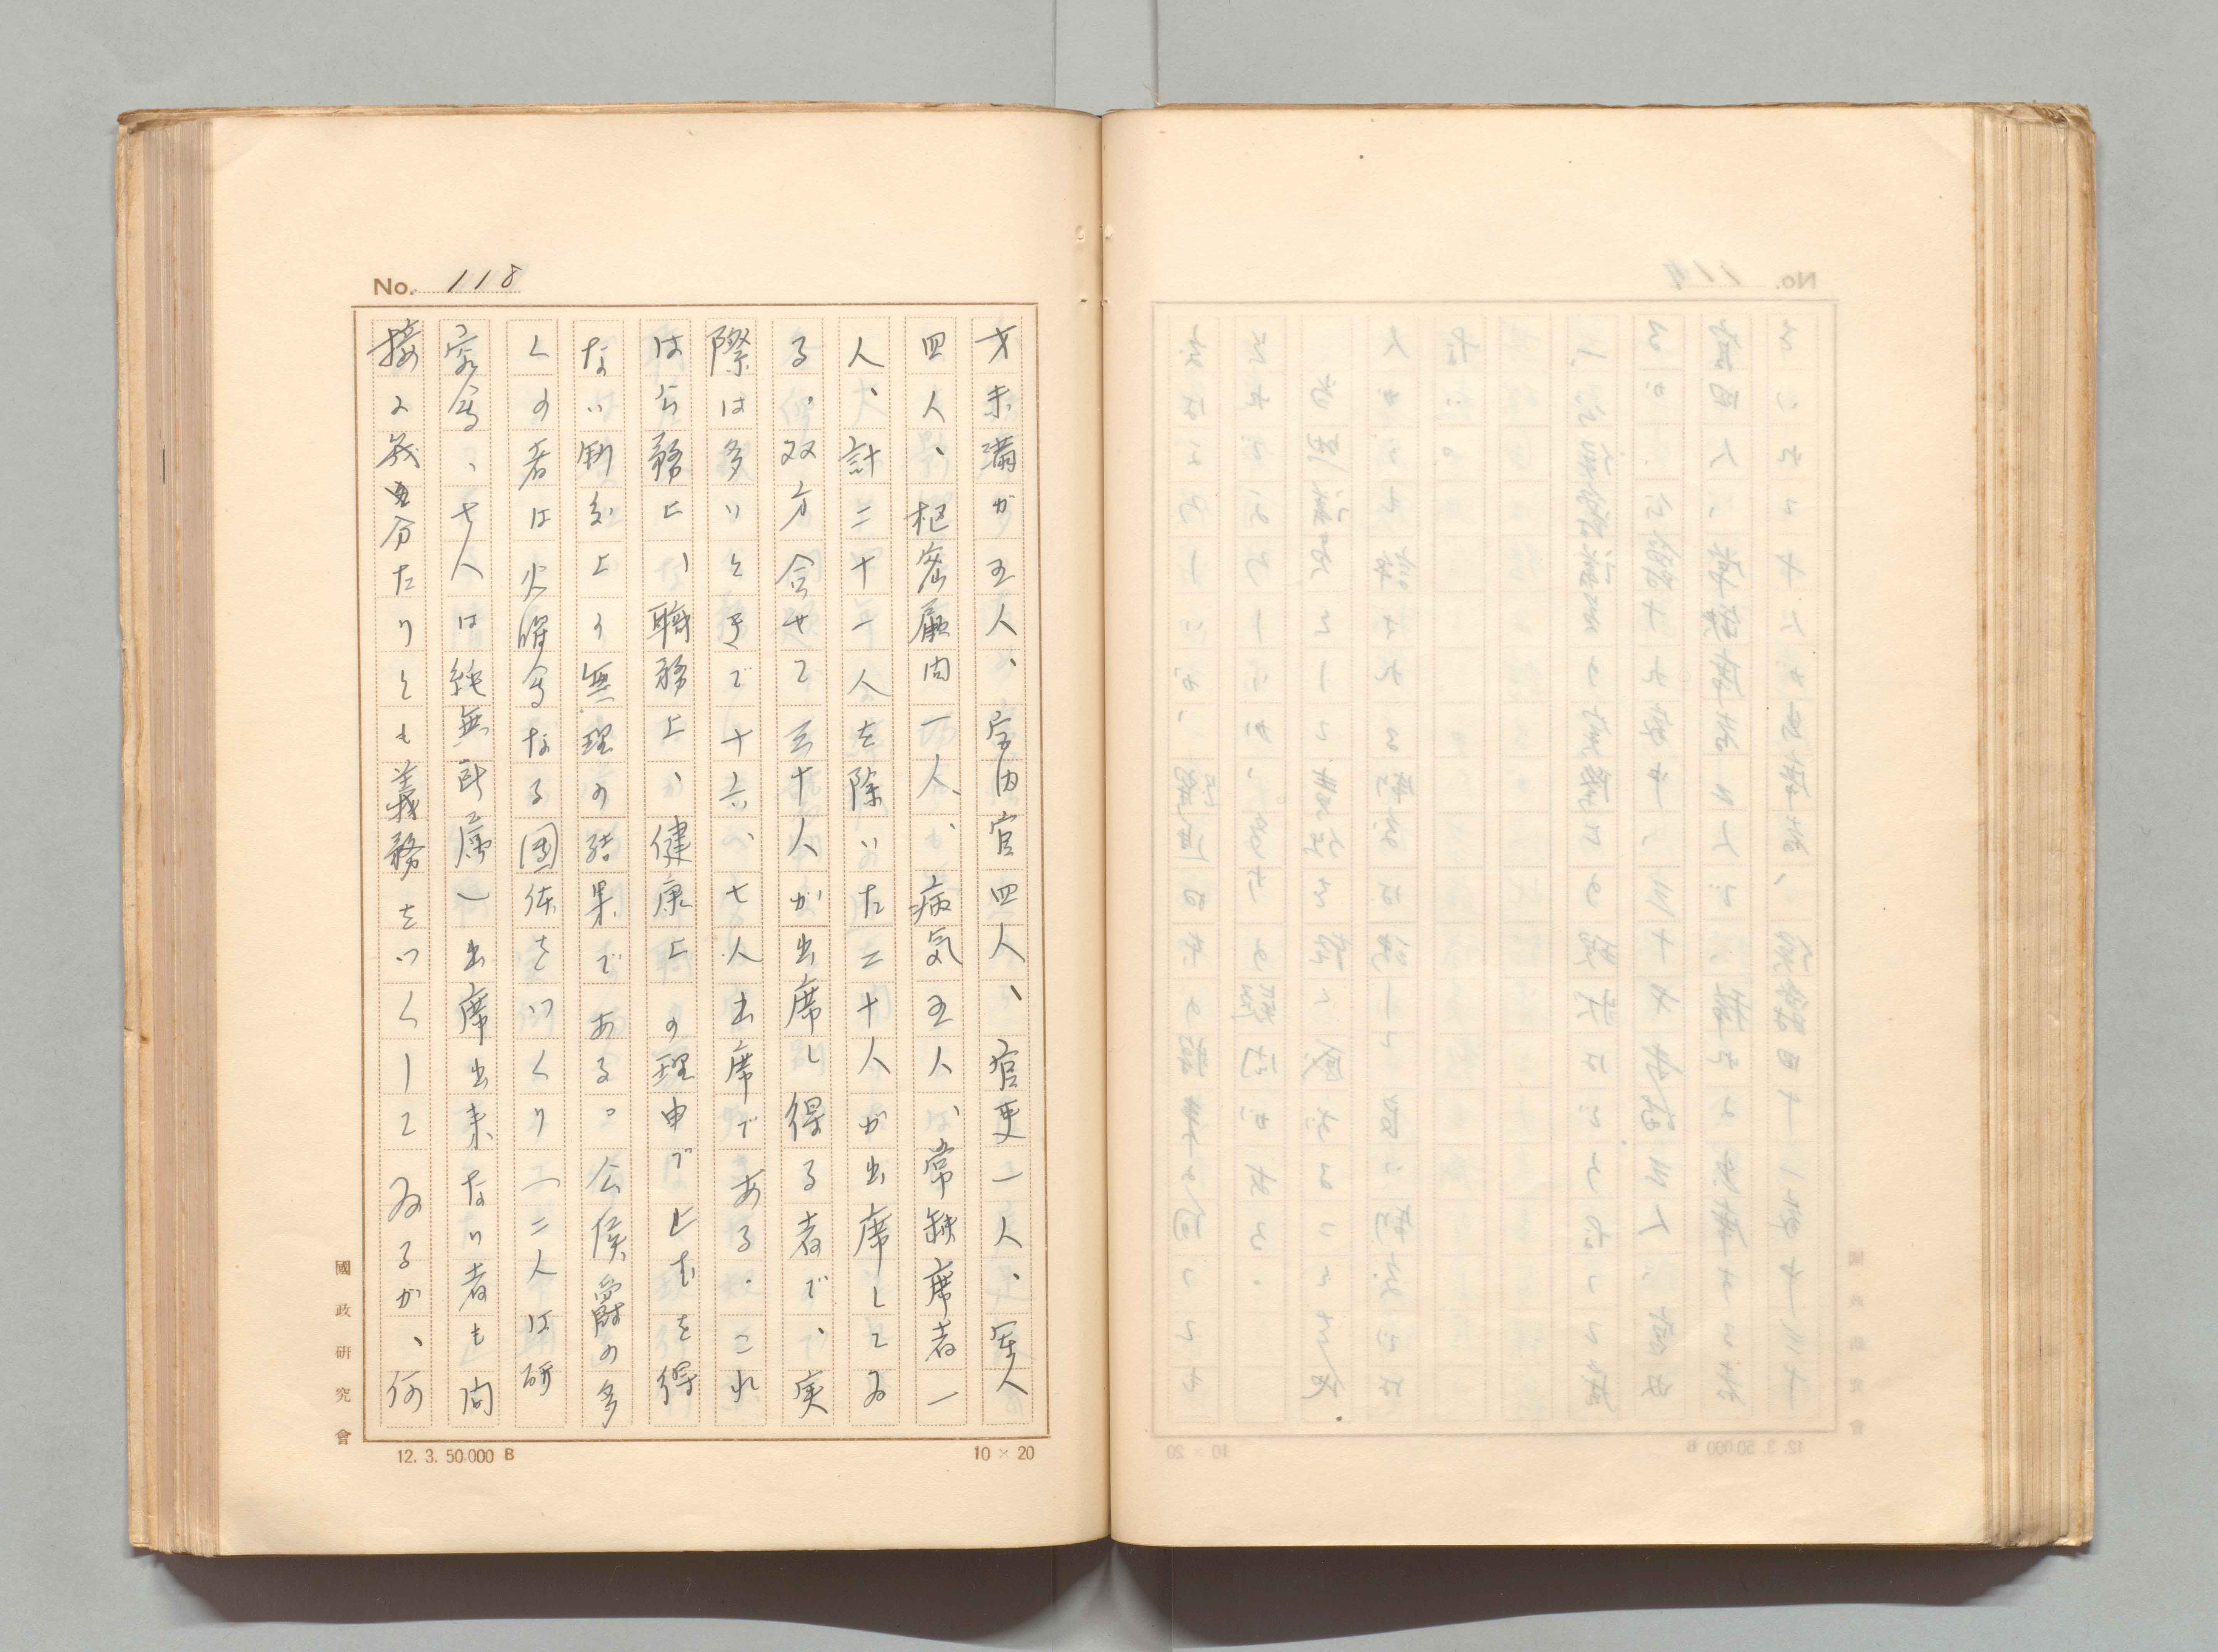 No. 118
才未満が五人、宮内官四人、官吏一人、軍人
四人、枢密顧問一人、病気五人、常缺席者一
人、計二十一人を除いた二十人が出席してゐ
る。双方合せて三十人が出席し得る者で、実
際は多いときで十六、七人出席である。これ
は公務上、職務上、健康上の理由で止むを得
ない制度上の無理の結果である。公侯爵の多
くの者は火曜会なる団体をつくり(二人は研
究会、七人は純無所属)出席出来ない者も間
接に幾分たりとも義務をつくしてゐるが、何
國政研究會
12. 3. 50.000 B
10 × 20